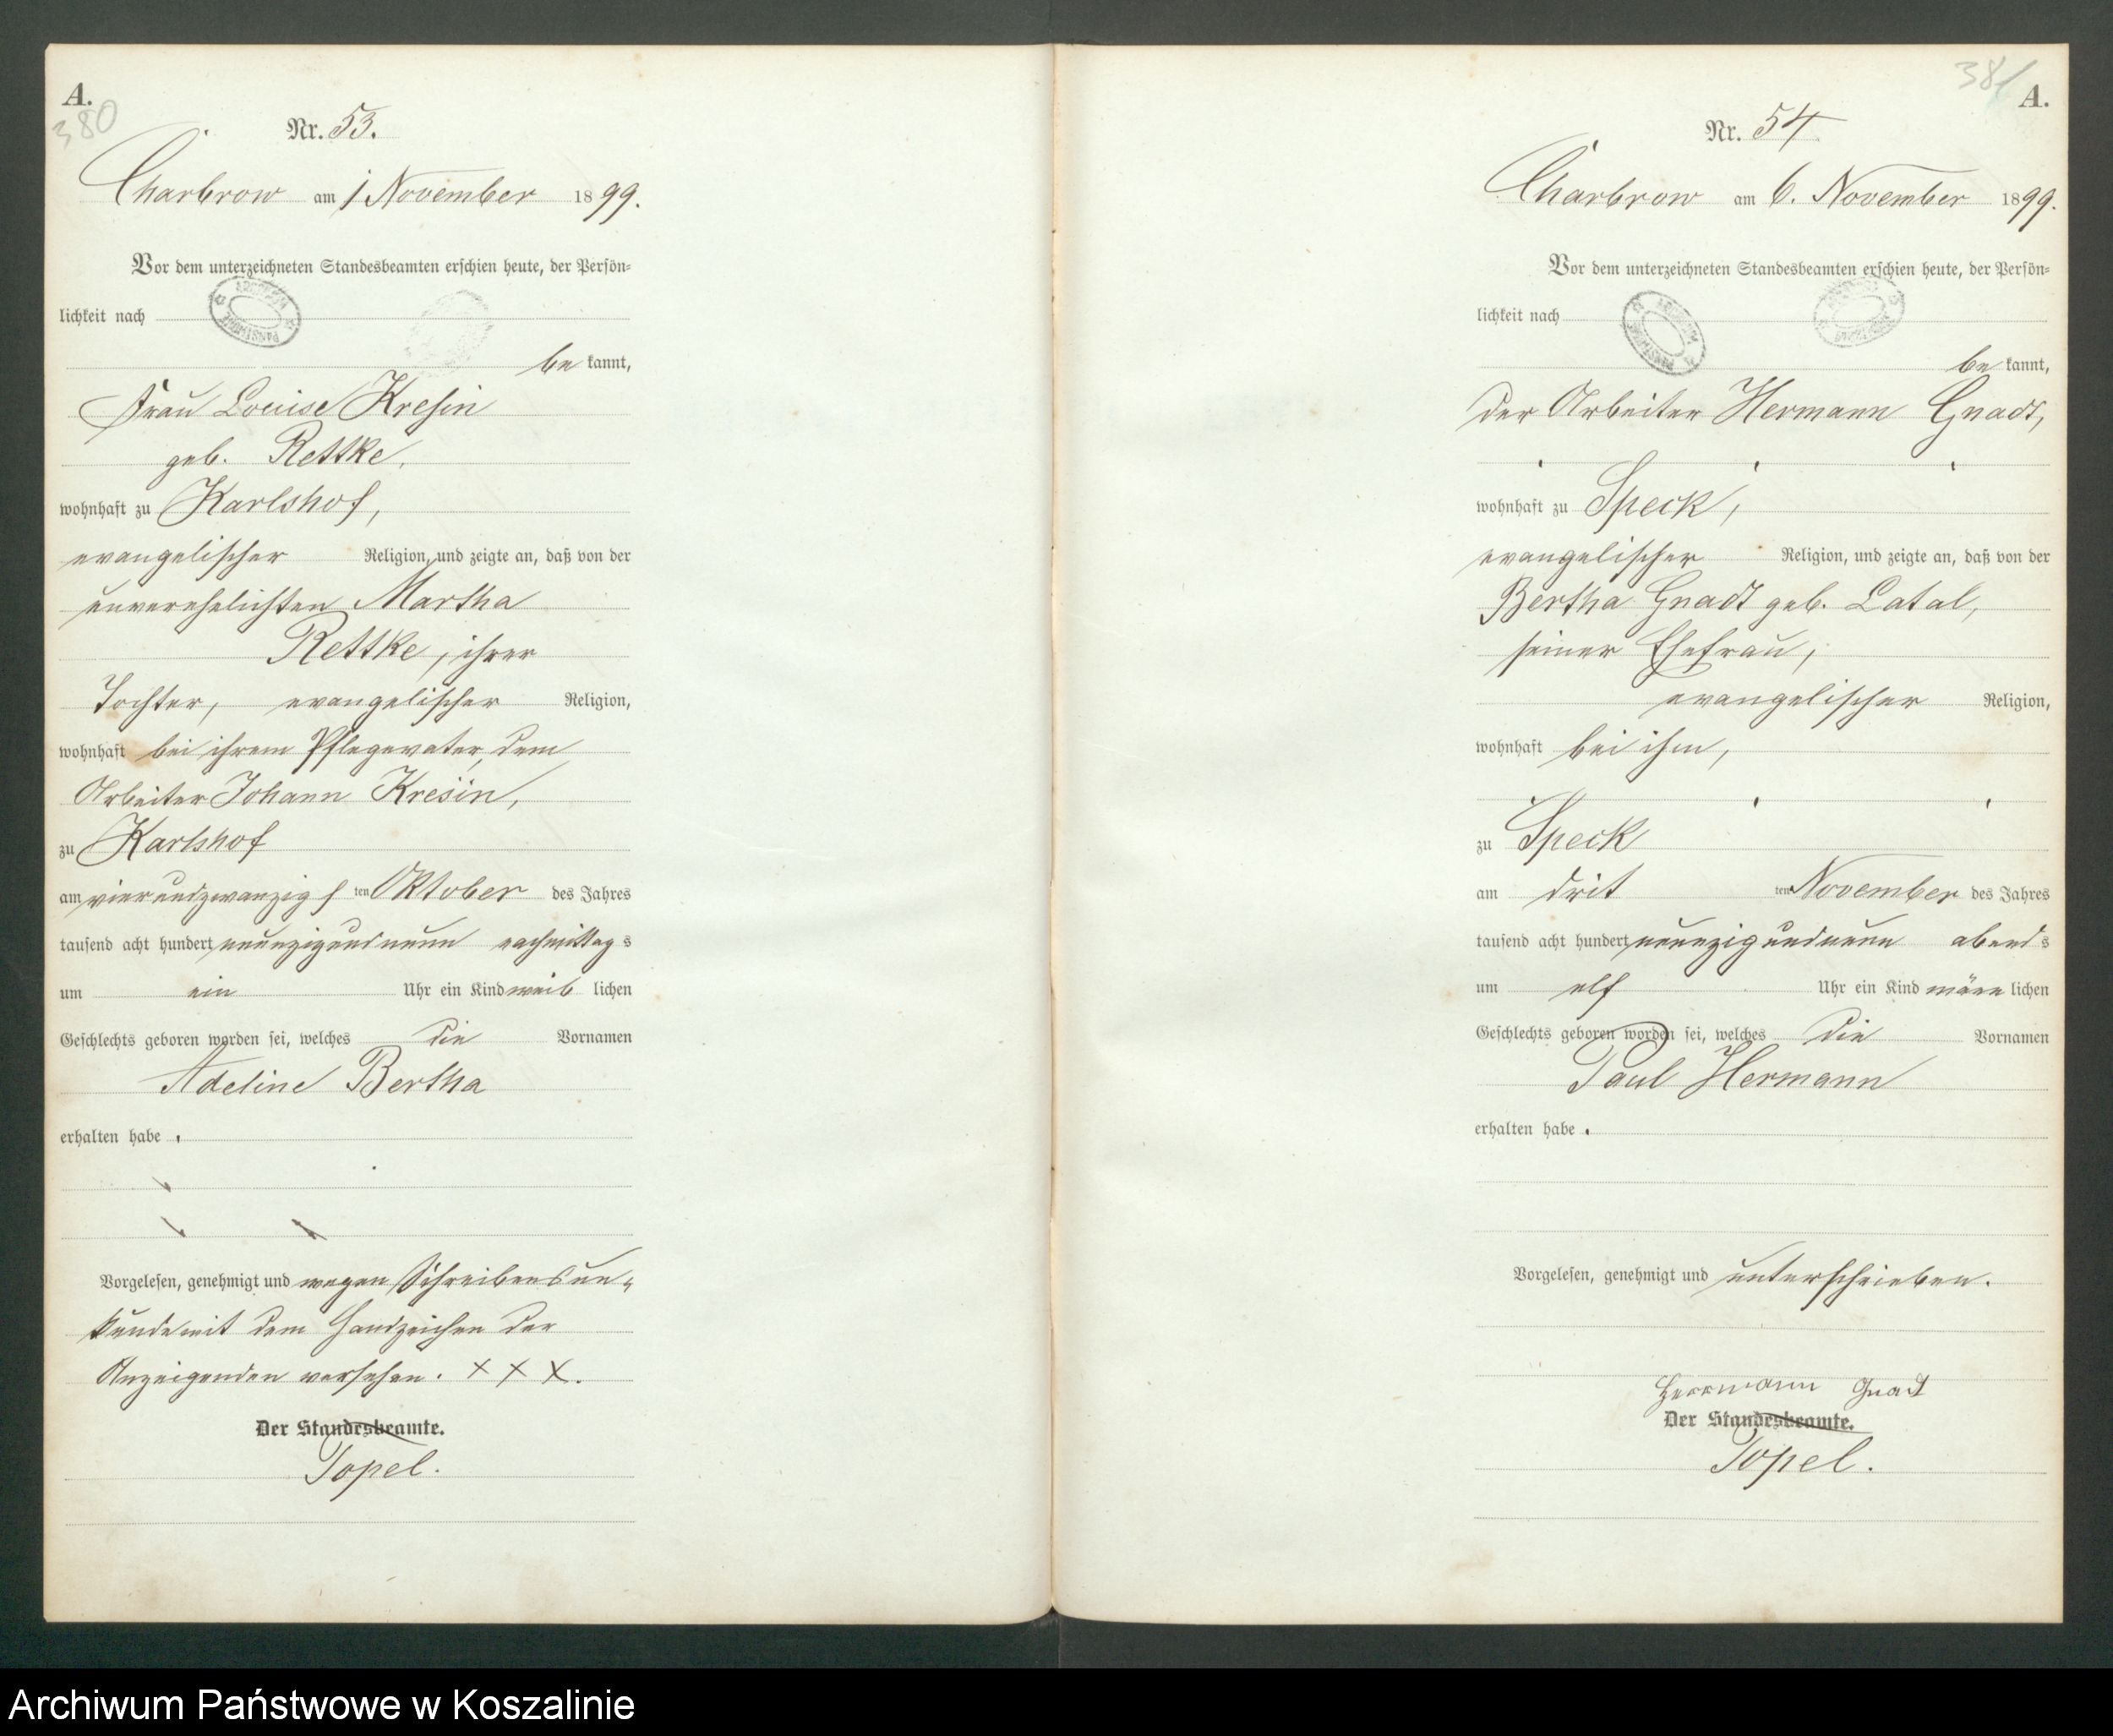 A.
380
Nr. 53.
Charbrow am 1 November 1899.
Vor dem unterzeichneten Standesbeamten erschien heute, der Persön-
lichkeit nach
be kannt,
Frau Louise Kresin
geb. Rettke,
wohnhaft zu Karlshof,
evangelischer Religion, und zeigte an, daß von der
unverehelichten Martha
Rettke, ihrer
Tochter, evangelischer Religion,
wohnhaft bei ihrem Pflegevater, dem
Arbeiter Johann Kresin,
zu Karlshof
am vierundzwanzigsten Oktober des Jahres
tausend acht hundert neunzigundneun nachmittags
um ein Uhr ein Kind weiblichen
Geschlechts geboren worden sei, welches die Vornamen
Adeline Bertha
erhalten habe.
Vorgelesen, genehmigt und wegen Schreibensun-
kunde mit dem Handzeichen der
Anzeigenden versehen. X X X.
Der Standesbeamte.
Topel.
381
A.
Nr. 54
Charbrow am 6. November 1899.
Vor dem unterzeichneten Standesbeamten erschien heute, der Persön-
lichkeit nach
be kannt,
der Arbeiter Hermann Gnadt,
wohnhaft zu Speck,
evangelischer Religion, und zeigte an, daß von der
Bertha Gnadt geb. Latal,
seiner Ehefrau,
evangelischer Religion,
wohnhaft bei ihm,
zu Speck
am dritten November des Jahres
tausend acht hundert neunzigundneun abends
um elf Uhr ein Kind männlichen
Geschlechts geboren worden sei, welches die Vornamen
Paul Hermann
erhalten habe.
Vorgelesen, genehmigt und unterschrieben.
Herrmann Gnadt
Der Standesbeamte.
Topel.
Archiwum Państwowe w Koszalinie